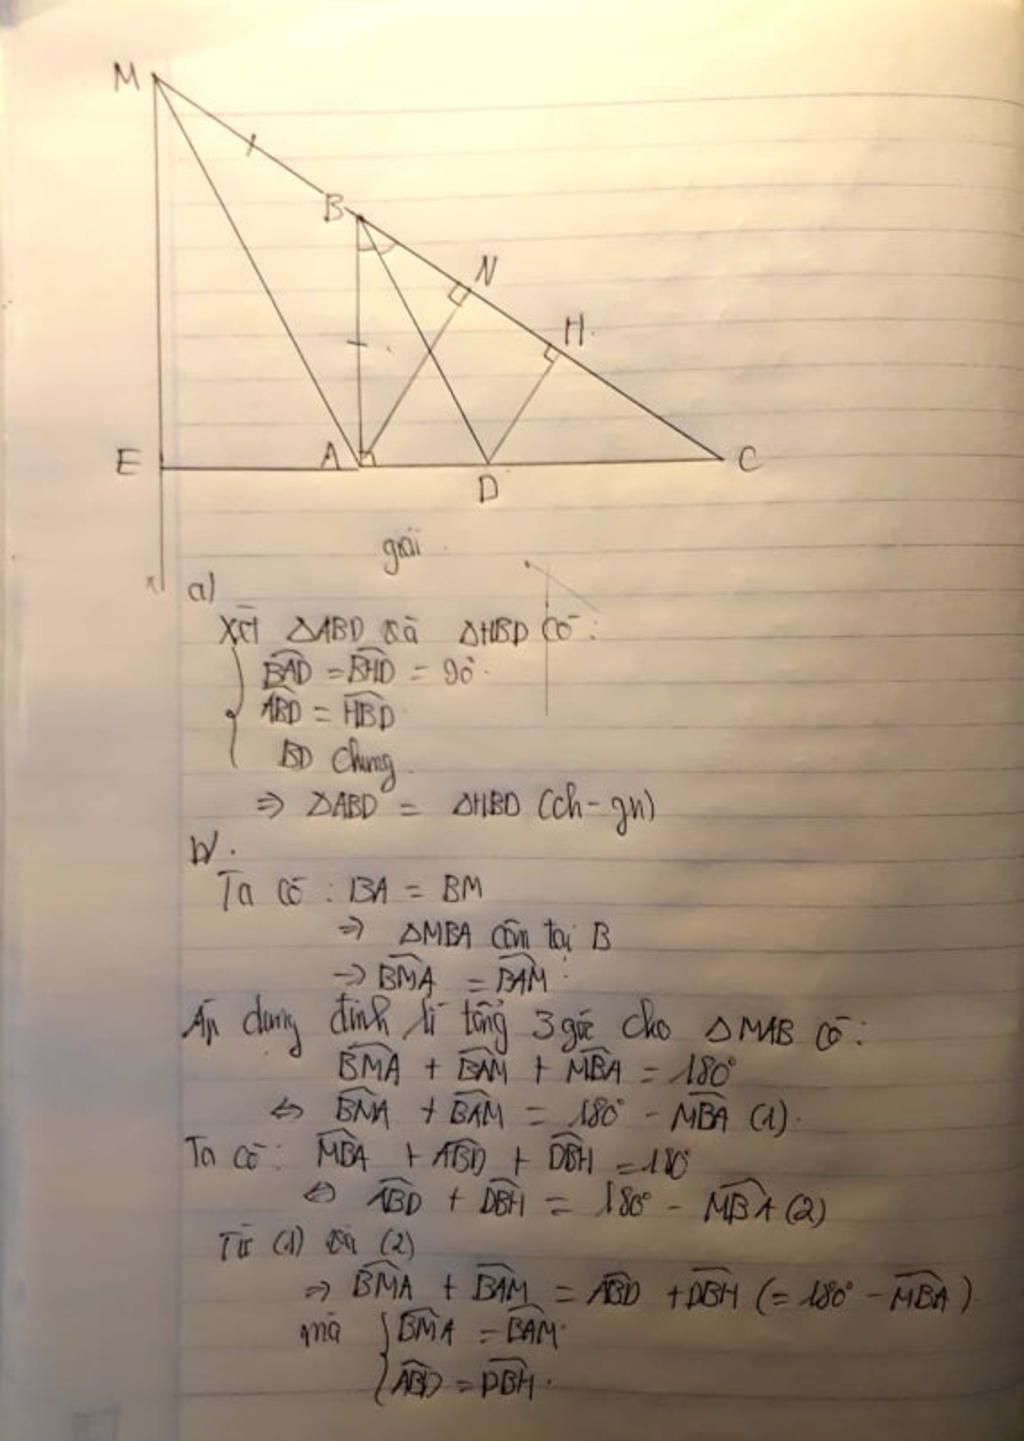 M
B
N
H
E
A
D
C
x
giải
a)
Xét ΔABD và ΔHBD có:
{ \widehat{BAD} = \widehat{BHD} = 90°
\widehat{ABD} = \widehat{HBD}
BD chung
⇒ ΔABD = ΔHBD (ch-gn)
b/.
Ta có : BA = BM
⇒ ΔMBA cân tại B
→ \widehat{BMA} = \widehat{BAM}
Áp dụng định lí tổng 3 góc cho ΔMAB có:
\widehat{BMA} + \widehat{BAM} + \widehat{MBA} = 180°
⇔ \widehat{BMA} + \widehat{BAM} = 180° - \widehat{MBA} (1).
Ta có: \widehat{MBA} + \widehat{ABD} + \widehat{DBH} = 180°
⇔ \widehat{ABD} + \widehat{DBH} = 180° - \widehat{MBA} (2)
Từ (1) và (2)
⇒ \widehat{BMA} + \widehat{BAM} = \widehat{ABD} + \widehat{DBH} (= 180° - \widehat{MBA}).
mà { \widehat{BMA} = \widehat{BAM}.
\widehat{ABD} = \widehat{DBH}.